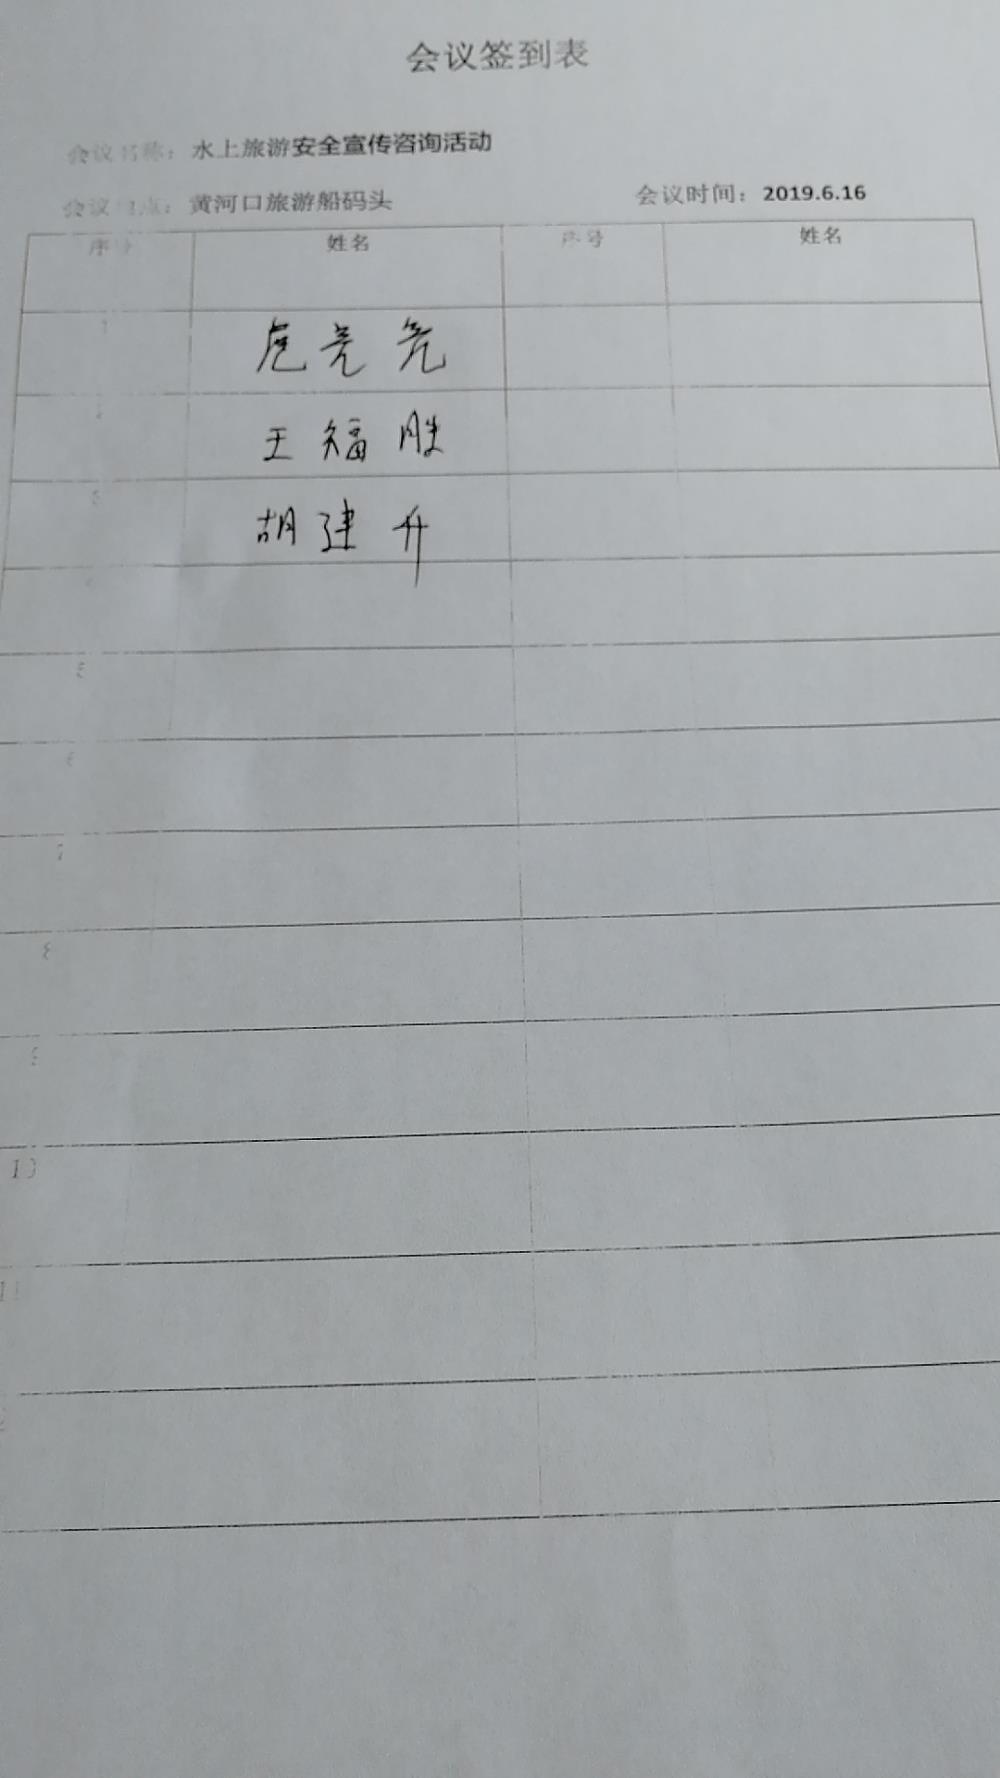 会议签到表
会议名称：水上旅游安全宣传咨询活动
会议地点：黄河口旅游船码头 会议时间：2019.6.16
序号 姓名 序号 姓名
1 亮亮
2 王福胜
3 胡建升
4
5
6
7
8
9
10
11